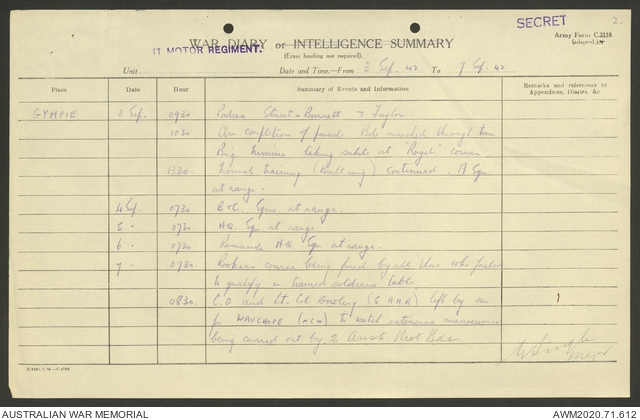 SECRET
2.
WAR DIARY or INTELLIGENCE SUMMARY
Army Form C.2118
(adapted.)
11 MOTOR REGIMENT.
(Erase heading not required).
Unit Date and Time—From 2 Sep. 42 To 7 Sep. 42
Place Date Hour Summary of Events and Information Remarks and references to
Appendices, Diaries, &c
GYMPIE 2 Sep. 0930 Padres Stuart-Burnett & Taylor
1030 On completion of parade Bde marched through town
Brig. taking salute at "Royal" corner
1330 Normal training (Bull ring) continued. A Sqn.
at range.
4 Sep. 0730 B & C. Sqns. at range.
5 " 0730 H.Q. Sq. at range.
6 " 0730 Remainder H.Q. Sqn. at range.
7 " 0730 Rookies course being fired by all who failed
to qualify in trained soldiers table.
0830. C.O and Lt. Col Dowling (5 A.M.R) left by car
for WAUCHOPE (N.S.W) to watch extensive manoeuvres
being carried out by 2 Aust Mot Bde.
Major
AUSTRALIAN WAR MEMORIAL
AWM2020.71.612